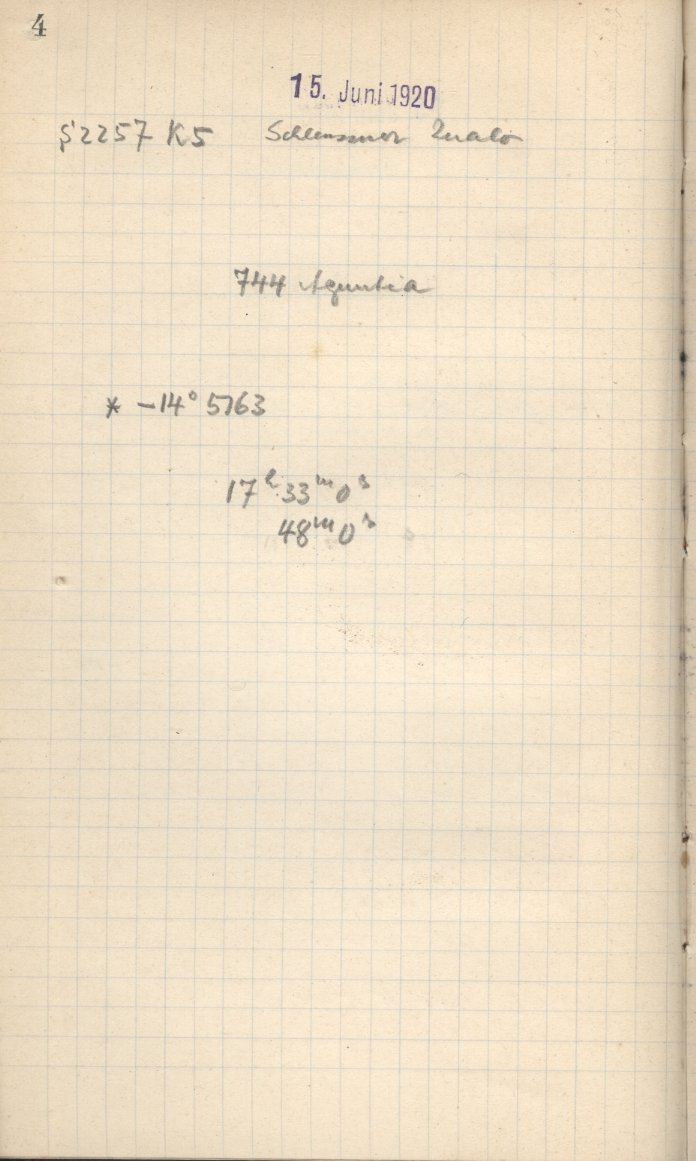 4
15. Juni 1920
2257 K5 Schleussner
744 Aguntia
* -14° 5763
17h 33m 0s
48m 0s